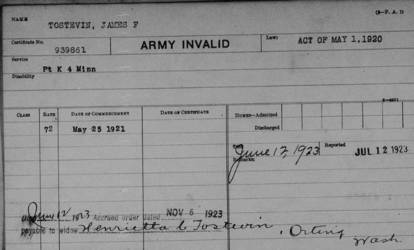 NAME
TOSTEVIN, JAMES F
Certificate No. 939861
ARMY INVALID
Law: ACT OF MAY 1, 1920
Service
Pt K 4 Minn
Disability
CLASS RATE DATE OF COMMENCEMENT DATE OF CERTIFICATE
HOMES—Admitted
Discharged
72 May 25 1921
June 12, 1923 Reported JUL 12 1923
Remarks:
June 12 1923 Accrued order dated NOV 6 1923
payable to widow Henrietta C Tostevin, Orting
Wash